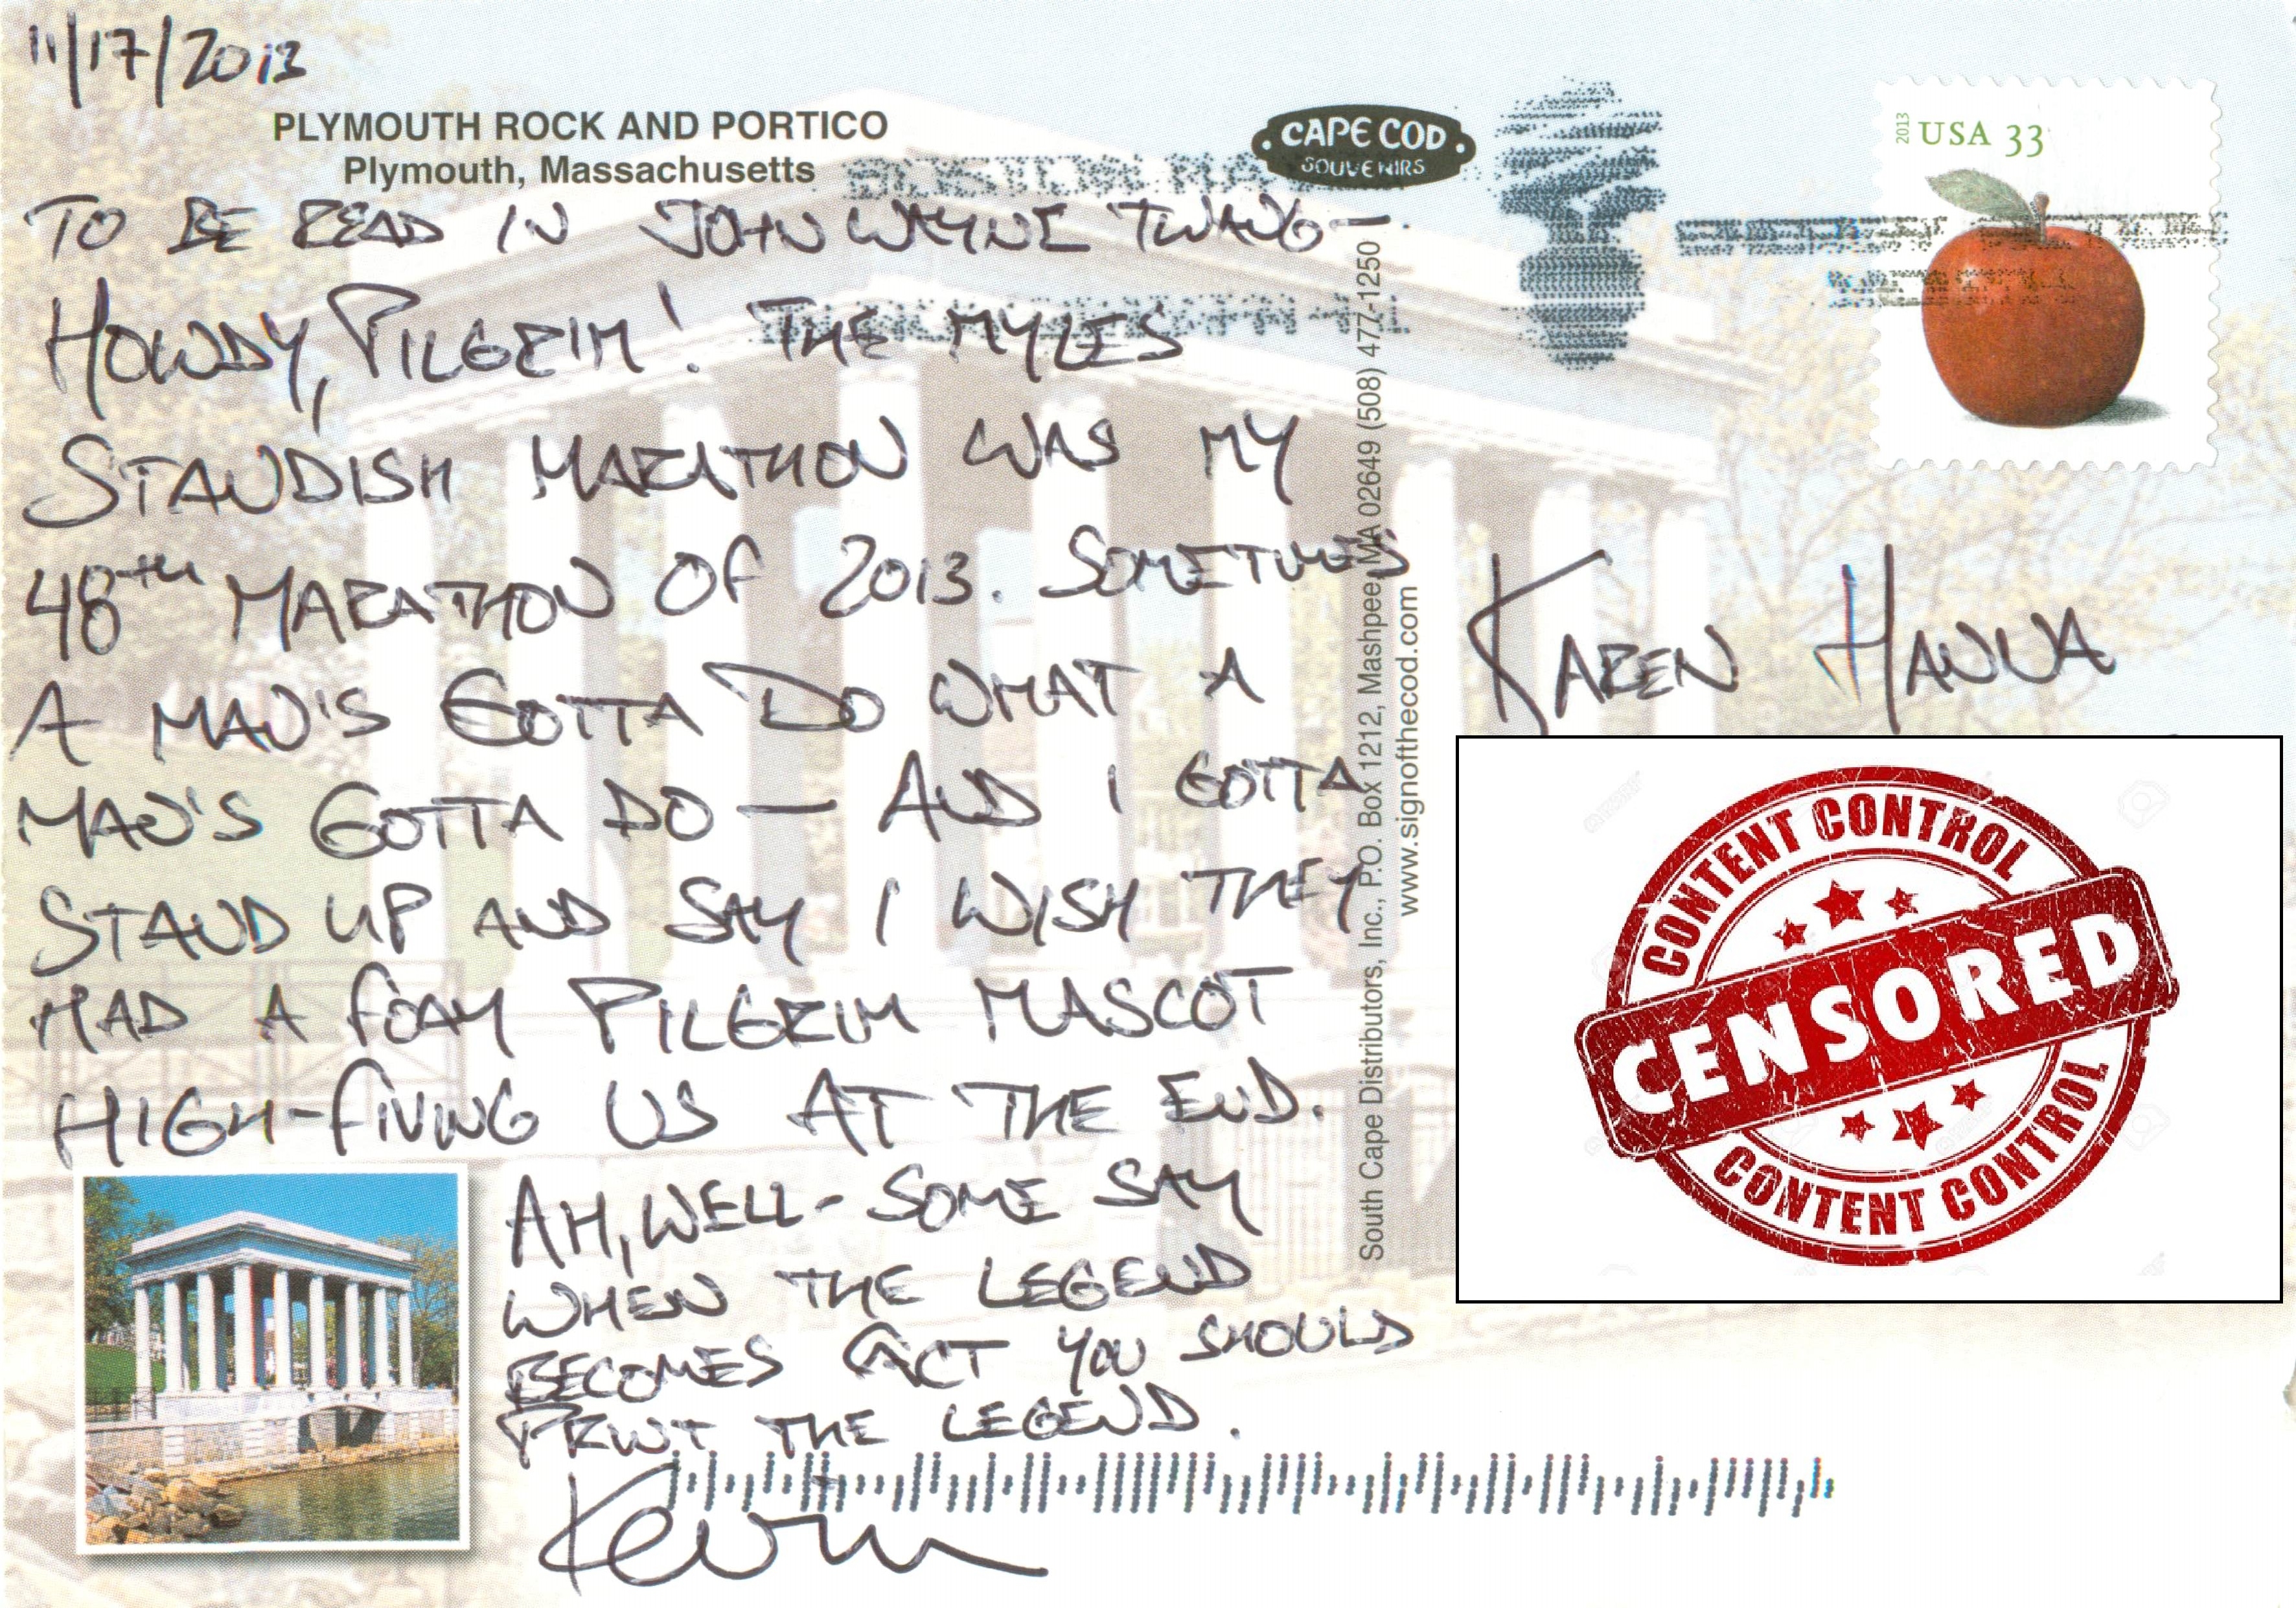 11/17/2013
PLYMOUTH ROCK AND PORTICO
Plymouth, Massachusetts
TO BE READ IN JOHN WAYNE TWANG-
HOWDY, PILGRIM! THE MYLES
STANDISH MARATHON WAS MY
48th MARATHON OF 2013. SOMETIMES
A MAN'S GOTTA DO WHAT A
MAN'S GOTTA DO - AND I GOTTA
STAND UP AND SAY I WISH THEY
HAD A FOAM PILGRIM MASCOT
HIGH-FIVING US AT THE END.
AH, WELL - SOME SAY
WHEN THE LEGEND
BECOMES FACT YOU SHOULD
PRINT THE LEGEND.
Kevin
CAPE COD
SOUVENIRS
South Cape Distributors, Inc., P.O. Box 1212, Mashpee, MA 02649 (508) 477-1250
www.signofthecod.com
2013
USA 33
KAREN HANNA
CONTENT CONTROL
CENSORED
CONTENT CONTROL